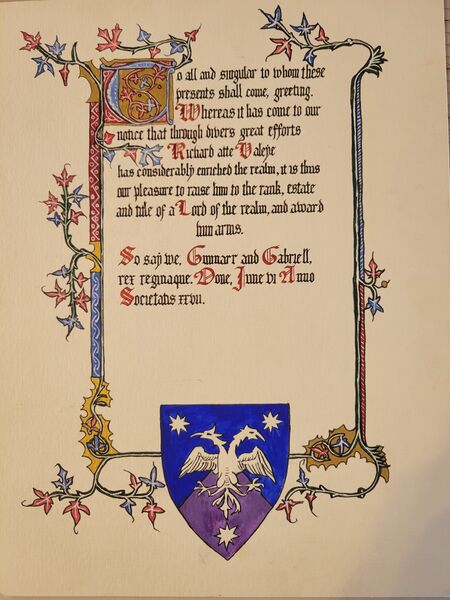 To all and singular to whom these
presents shall come, greeting.
Whereas it has come to our
notice that through divers great efforts
Richard atte Valeye
has considerably enriched the realm, it is thus
our pleasure to raise him to the rank, estate
and title of a Lord of the realm, and award
him arms.
So say we, Gunnarr and Gabriell,
rex reginaque. Done, June vi Anno
Societatis xxvii.